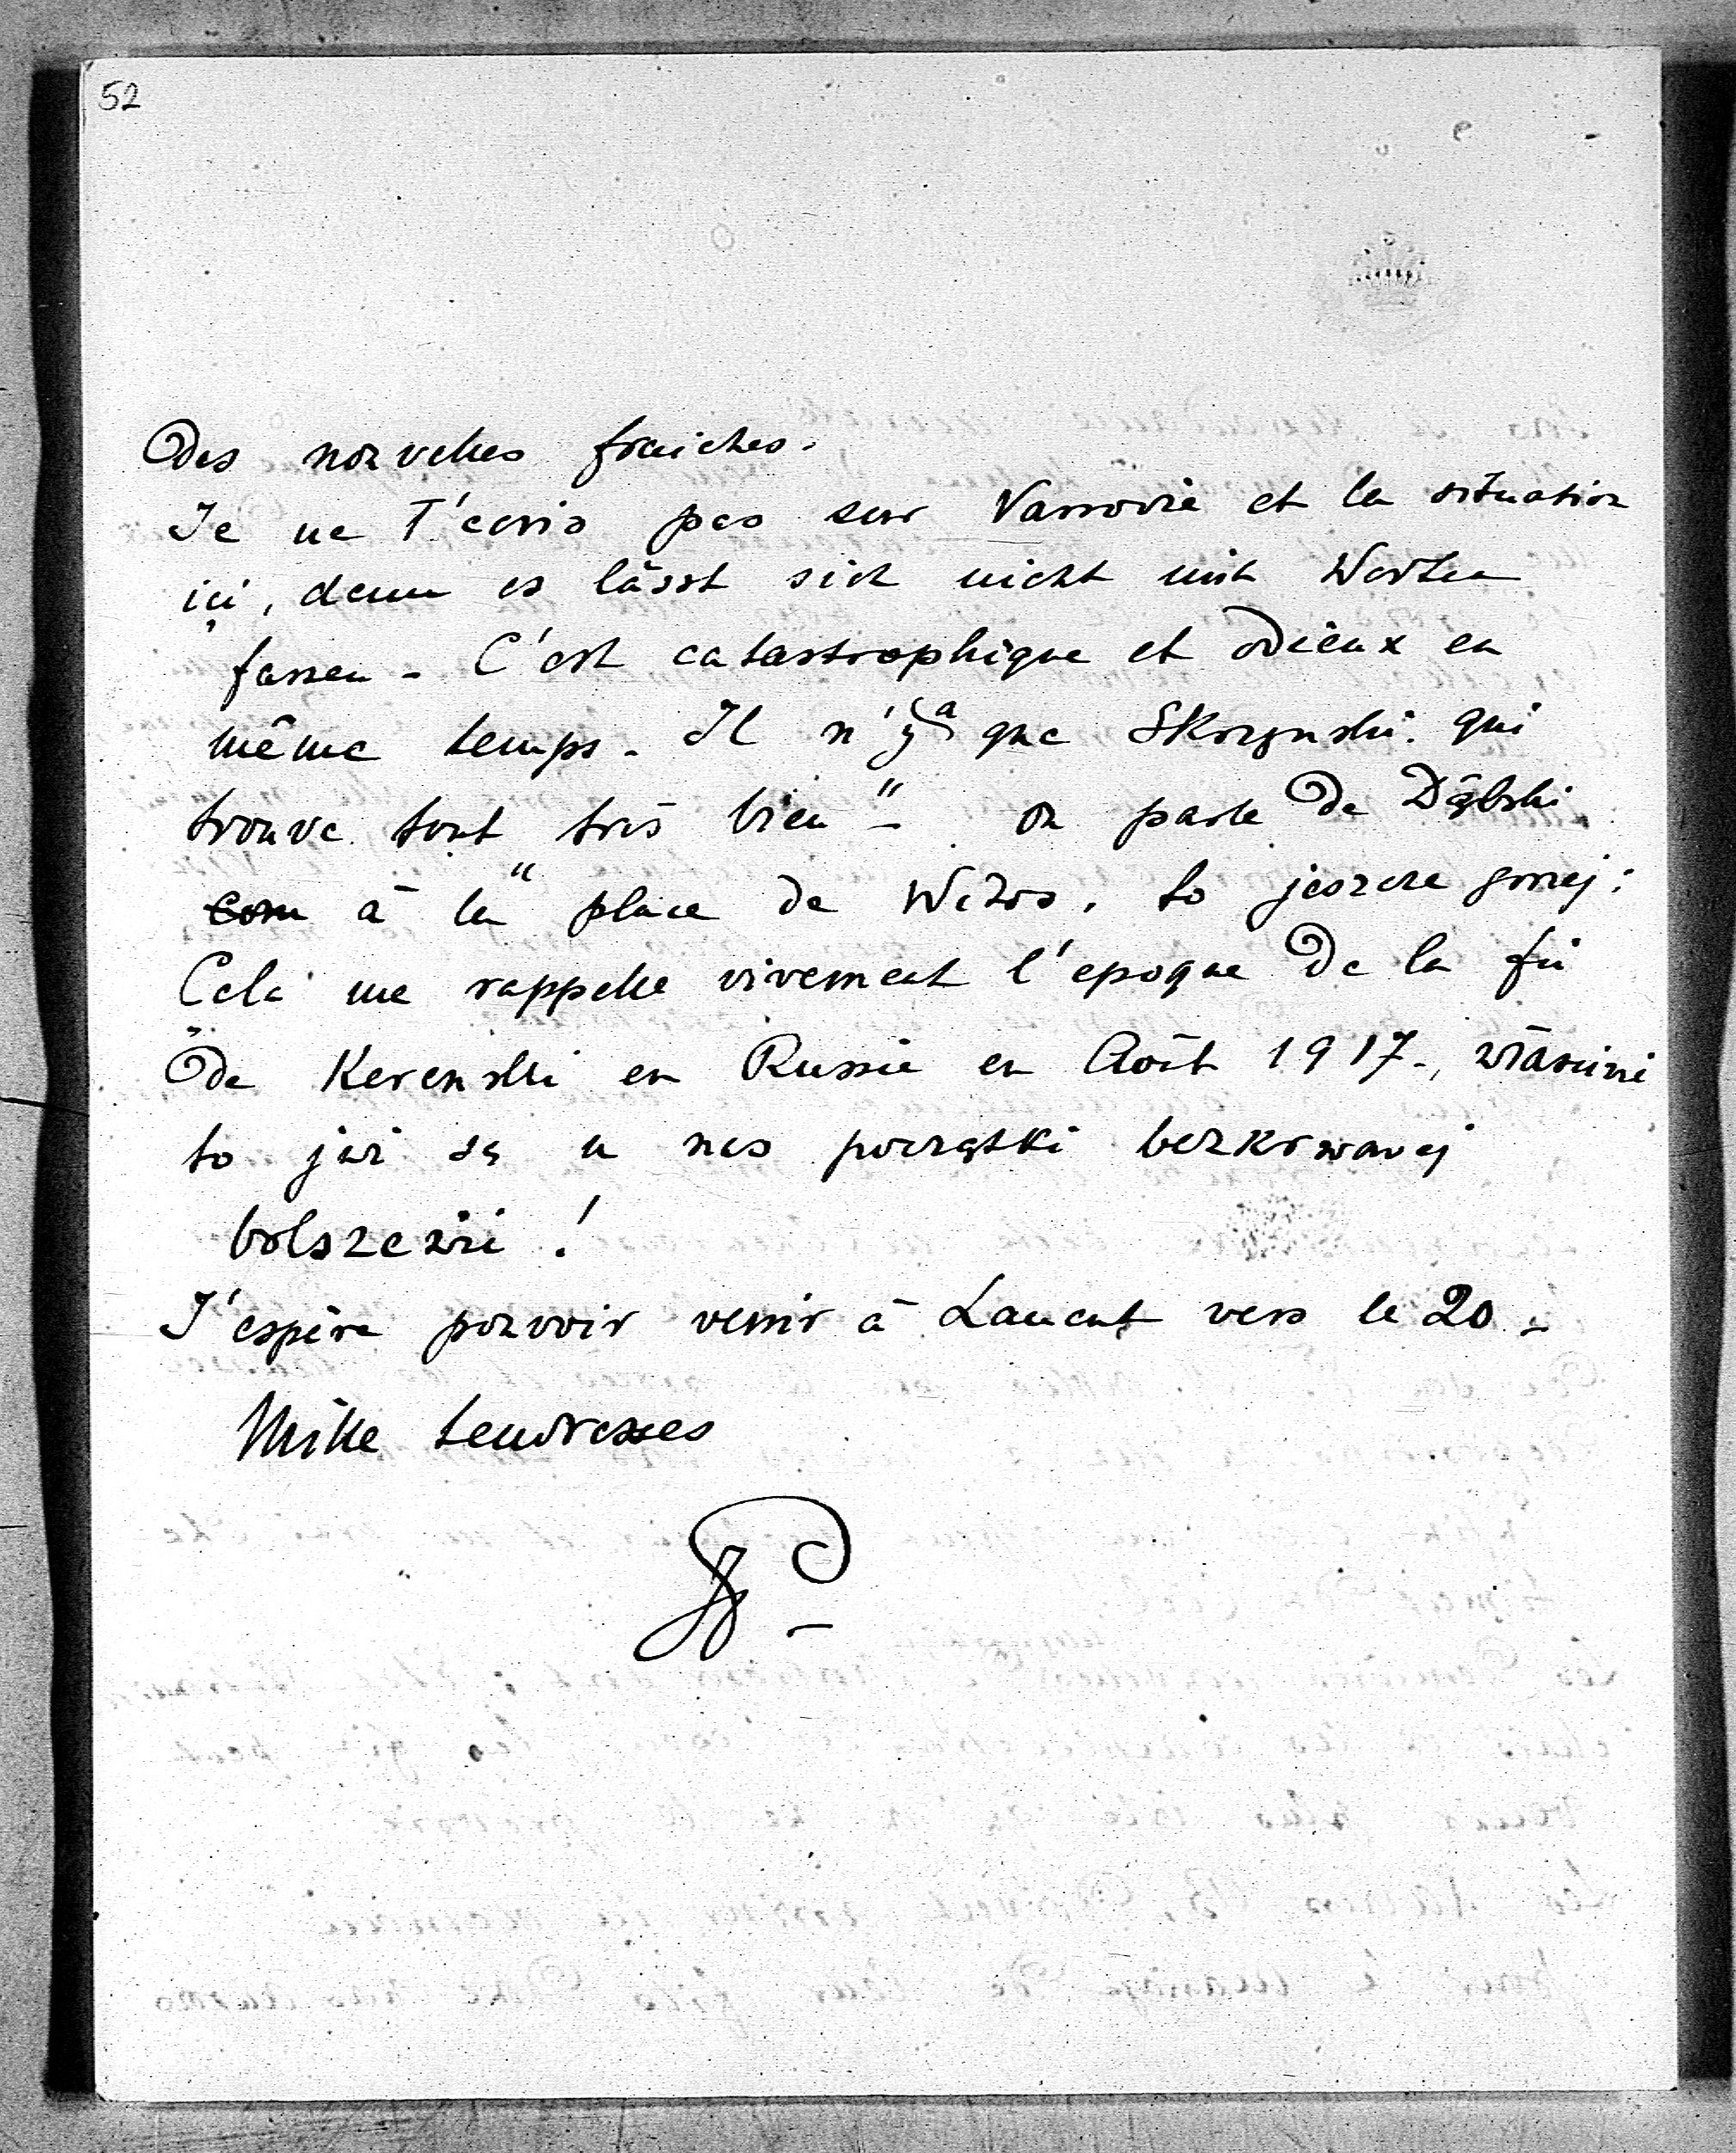 52
des nouvelles fraiches.
Je ne T'ecris pas sur Varsovie et la situation
ici, denn es lässt sich nicht mit Worten
fassen - C'est catastrophique et odieux en
même temps - Il n'y a que Skrzynski qui
trouve tout très bien" - on parle de Dąbski
com à la "place de Witos, to jeszcze gorzej:
Cela me rappelle vivement l'epoque de la fin
de Kerenski en Russie en Août 1917-, właściwie
to już są u nas początki bezkrwawej
bolszewii !
J'espère pouvoir venir à Lancut vers le 20 -
Mille tendresses